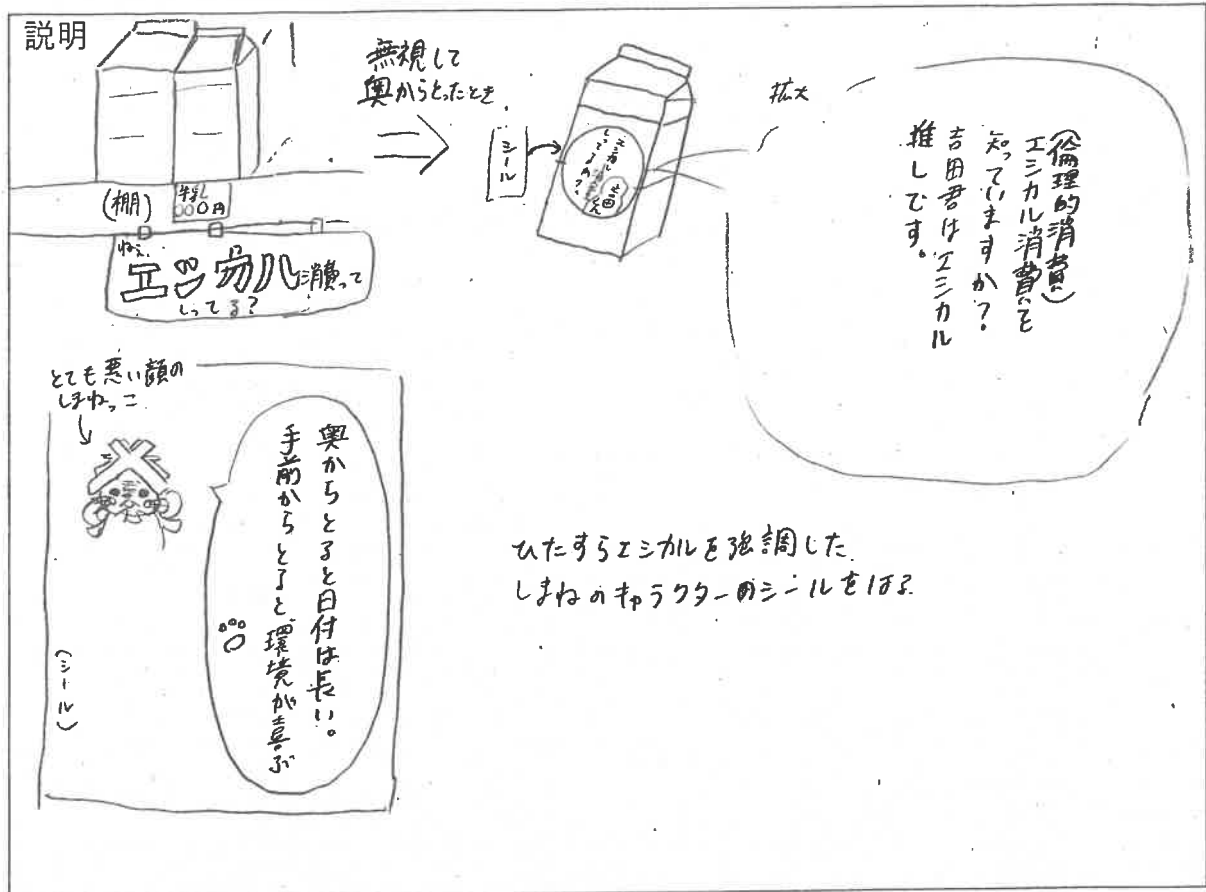 説明
無視して
奥からとったとき
シール
拡大
(倫理的消費)
エシカル消費を
知っていますか?
吉田君はエシカル
推しです。
エシカル
しってるかい?
吉田くん
(棚)
牛乳
○○○円
ねぇ、
エシカル消費って
しってる?
とても悪い顔の
しまねっこ
奥からとると日付は長い。
手前からとると環境が喜ぶ
(シール)
ひたすらエシカルを強調した
しまねのキャラクターのシールをはる